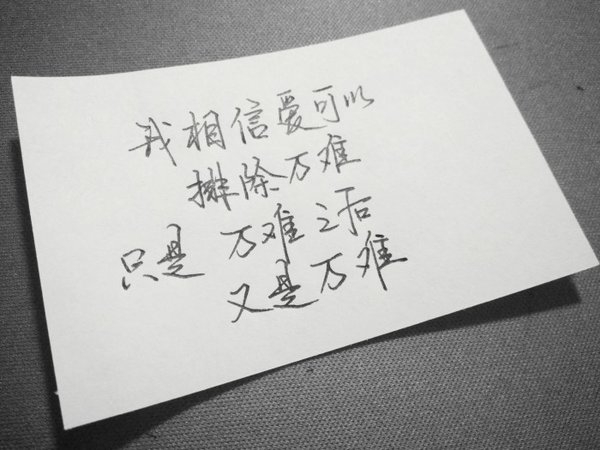 我相信爱可以
排除万难
只是 万难之后
又是万难